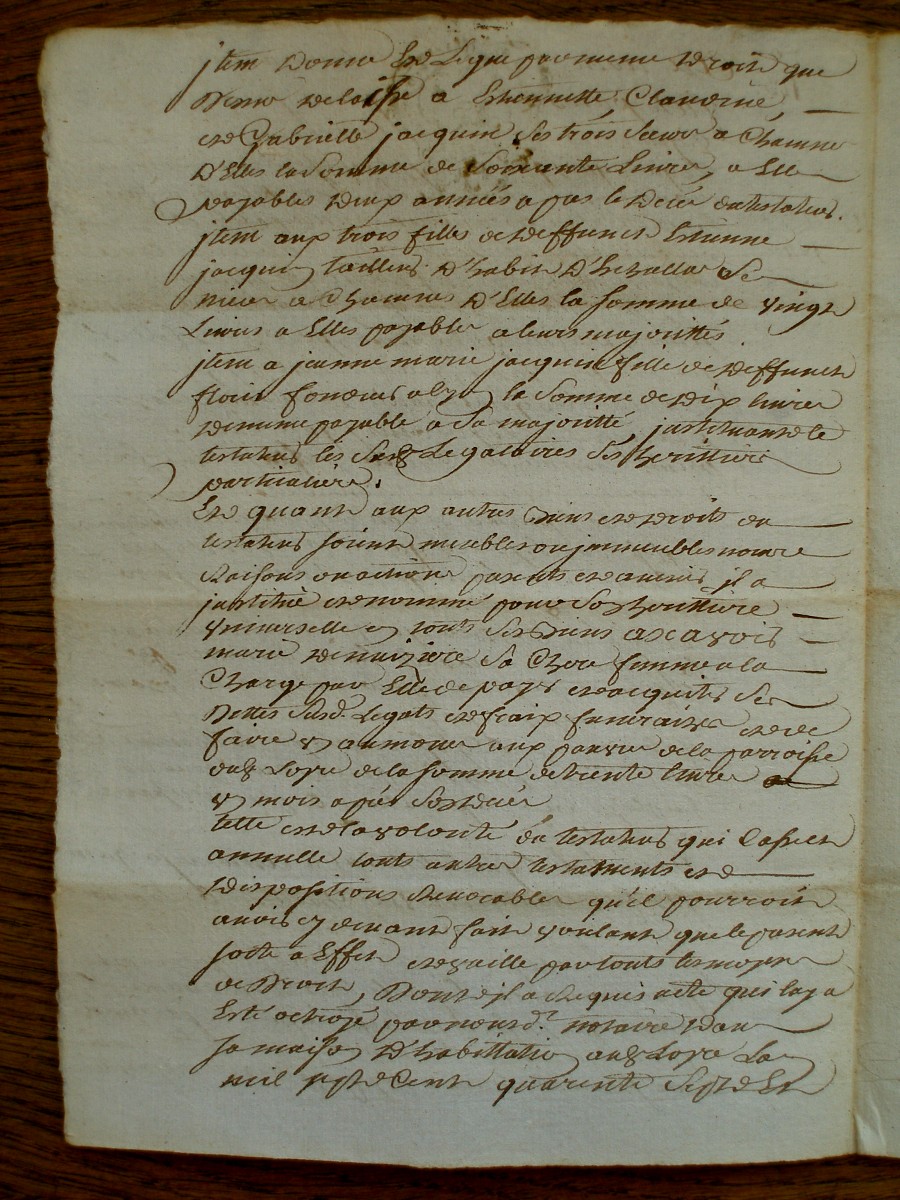 jtem donne Et Legue par meme droit que
dessus de laisse a Ethiennette Claudine
et Gabrielle jacquin ses trois soeurs a Chacune
D'Elles la Somme de Soixante Livres, a Elles
payables deux années apres le décé du testateur.
jtem aux trois filles de deffunct Estienne
jacquin tailleur D'habits D'
a Chacunes D'Elles la somme de vingt
Livres a Elles payables a leurs majorittés
jtem a jeanne marie jacquin fille de deffunct
la Somme de dix livres
de meme payable a Sa majoritté, justituant le
testateur les Susd Legataires Ses herittiers
particuliers.
Et quant aux autres Biens et droits du
testateur soient meubles ou jmmeubles noms
Raisons ou actions presents et avenir il a
justitué et nommé pour Son herittiere
vniverselle en touts Ses Biens et avoirs
marie Sa Chere femme a la
Charge par Elle de payer et acquiter Ses
Dettes Susd. Legats et fraix funeraires et de
faire vn aumone aux pauvres de la parroisse
dud de la somme de trente livres
vn mois apres Son décé
telle est la volonté du testateur qui Casse et
annulle touts autres testaments et
dispositions Revocables qu'il pourroit
avoir cy devant fait voulant que le present
sorte a Effet et vaille par touts les moyens
de Droit, Dont il a Requis acte qui luy a
Esté octroyé par nousd. notaire dans
sa maison D'habittation aud Lan
mil sept Cent quarente Sept Et